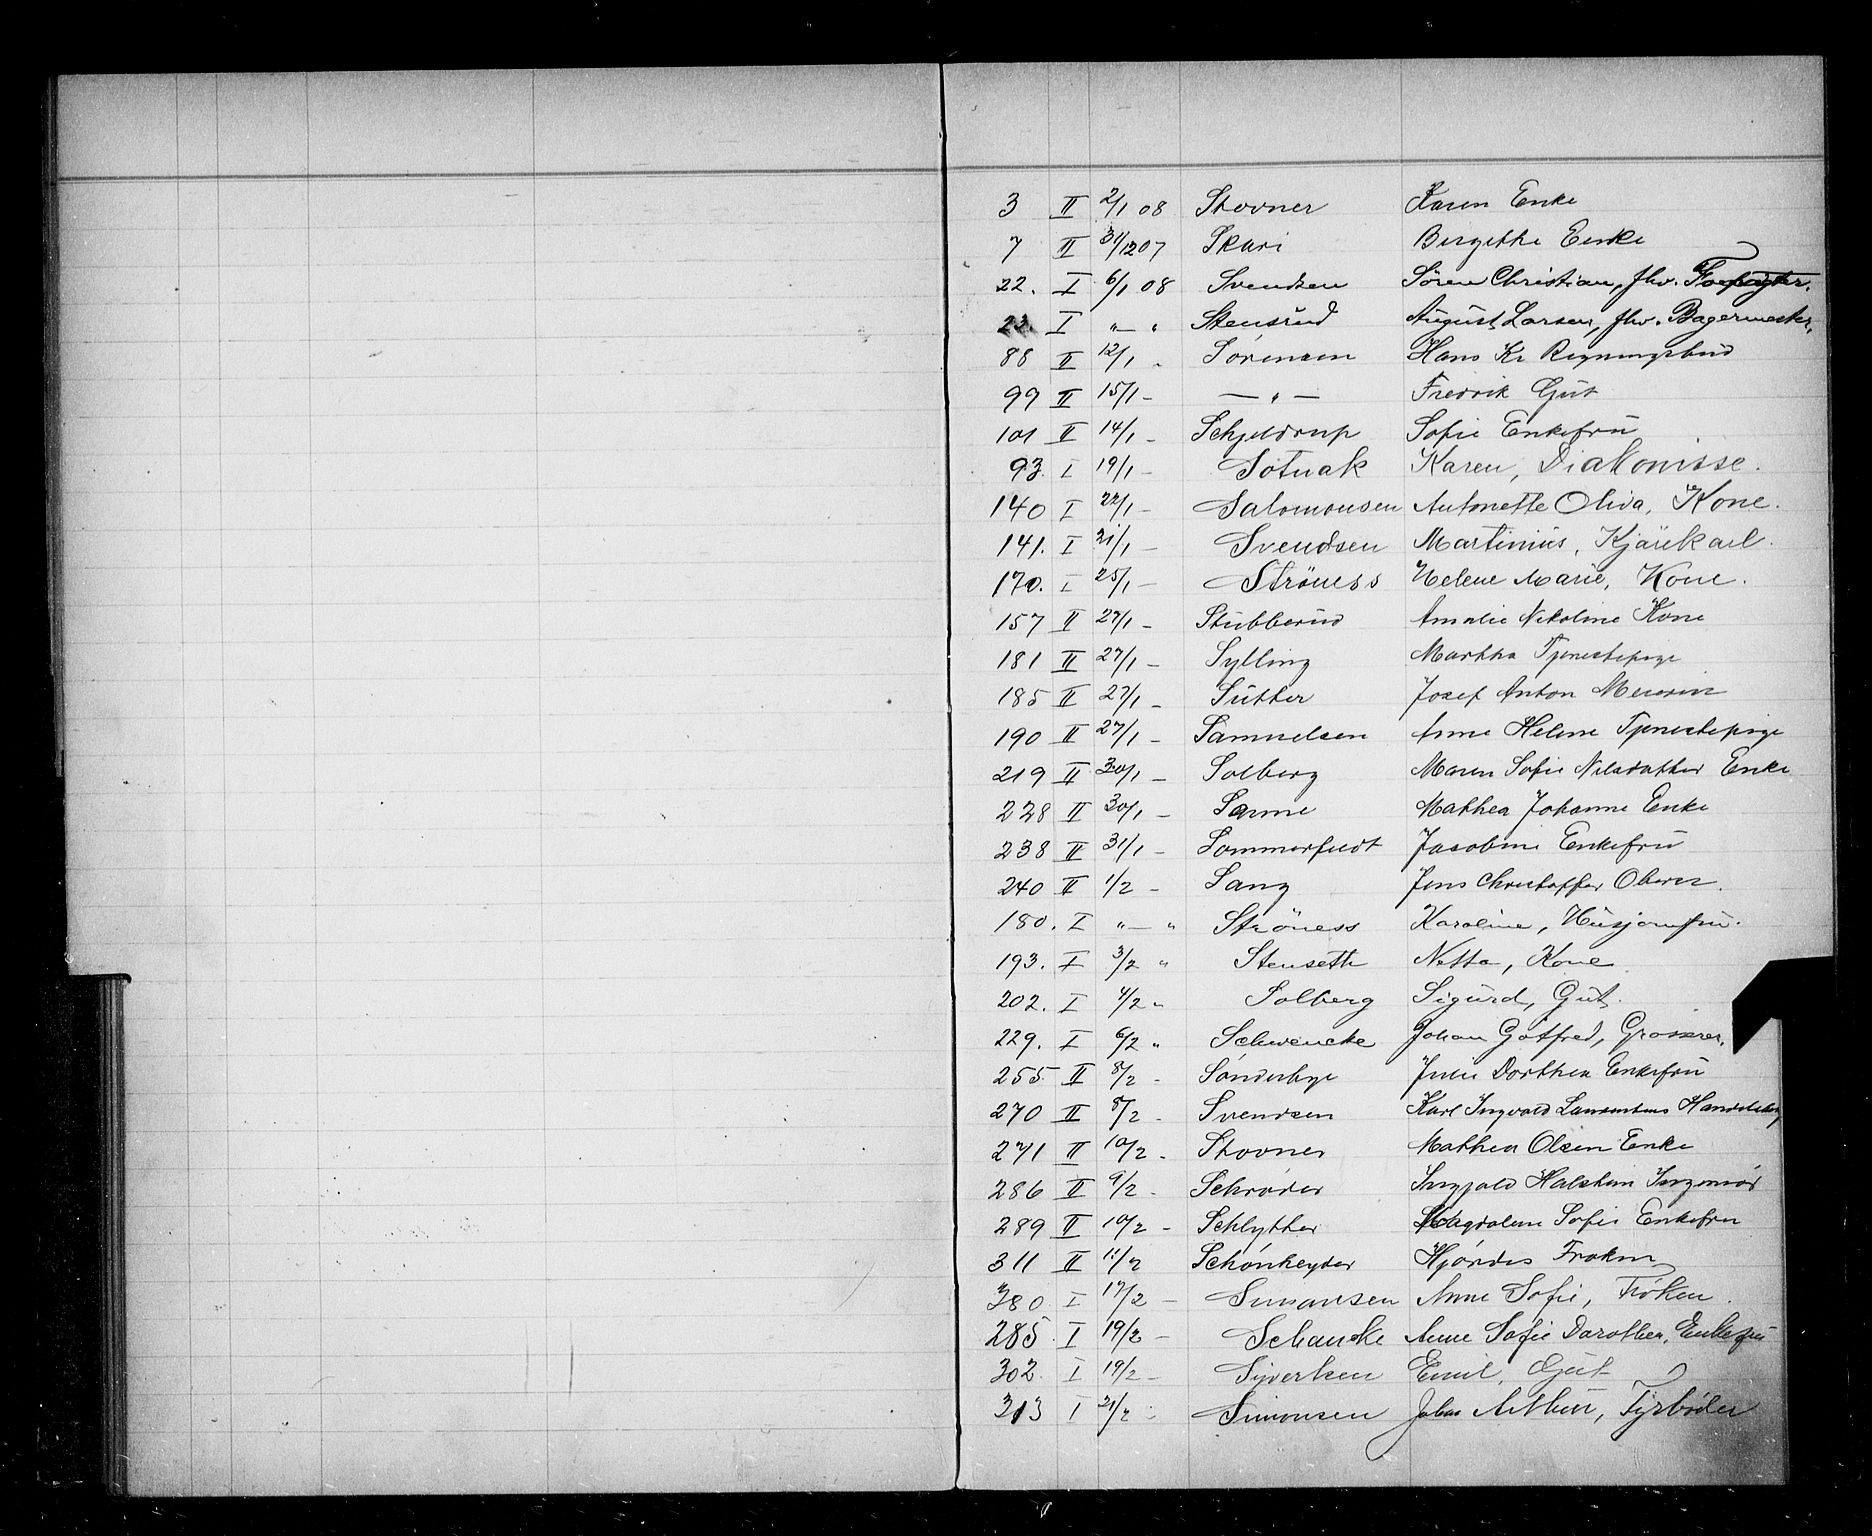 3 II 2/1 08 Stovner Karen Enke
7 II 31/12 07 Skari Bergitte Enke
22. I 6/1 08 Svendsen Sören Christian, fhv.
23. I "—" Stensrud August Larsen, fhv. Bagermester.
88 II 12/1 - Sørensen Hans Kr Regningsbud
99 II 15/1 - — " — Fredrik Gut
101 II 14/1 - Schjeldrup Sofie Enkefru
93. I 19/1 - Karen, Diakonisse.
140 I 22/1 - Salomonsen Antonette Oliva, Kone.
141. I 21/1 - Svendsen Martinius, Kjörekarl.
170. I 25/1 - Ströness Helene Marie, Kone.
157 II 27/1 - Stubberud Amalie Nikoline Kone
181 II 27/1 - Sylling Martha Tjenestepige
185 II 27/1 - Sutter Josef Anton
190 II 27/1 - Samuelsen Anne Helene Tjenestepige
219 II 30/1 - Solberg Maren Sofie Nilsdatter Enke
228 II 30/1 - Sanne Mathea Johanne Enke
238 II 31/1 - Sommerfeldt Jacobine Enkefru
240 II 1/2 - Sang Jens Christoffer
180. I "—" Ströness Karoline, Husjomfru.
193. I 3/2 " Stenseth Netta, Kone
202. I 4/2 " Solberg Sigurd, Gut.
229. I 6/2 " Schwencke Johan Gotfred, Grosserer.
255 II 8/2 - Sønderbye Julie Dorthea Enkefru
270 II 8/2 - Svendsen Karl Ingvald Laurentius
271 II 10/2 - Stovner Mathea Olsen Enke
286 II 9/2 - Schrøder Ingjald Halstein Ingeniør
289 II 10/2 - Schlytter Magdalene Sofie Enkefru
311 II 11/2 Schønheyder Hjørdis Frøken
280 I 17/2 - Simonsen Anne Sofie, Fröken.
285. I 19/2 - Schancke Anne Sofie Dorothea, Enkefru
302. I 19/2 - Syvertsen Emil, Gut
313 I 21/2 - Simonsen Johan Arthur, Fyrböder